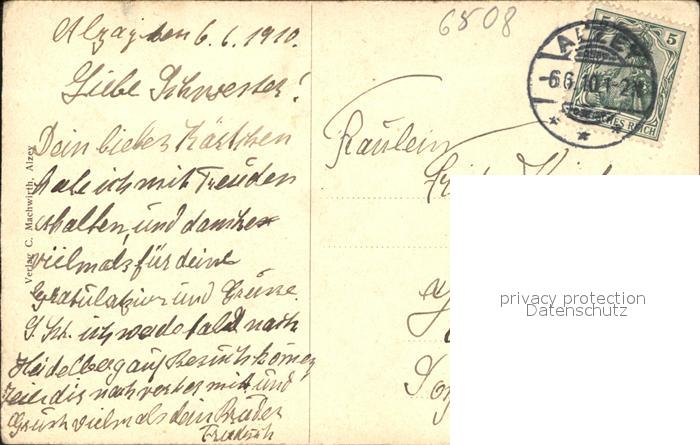 6808
Alzey den 6.6.1910.
Liebe Schwester!
Dein liebes Kärtchen
habe ich mit Freuden
erhalten, und danke
vielmals für deine
Gratulazion und Grüsse.
ich werde bald nach
Heidelberg auf Besuch komen
teile dir noch vorher mit und
Grüsst vielmals dein Bruder
Friedrich
Verlag C. Machwirth, Alzey
Fräulein
ALZEY
6.6.10.1-2N
5
5
DEUTSCHES REICH
privacy protection
Datenschutz